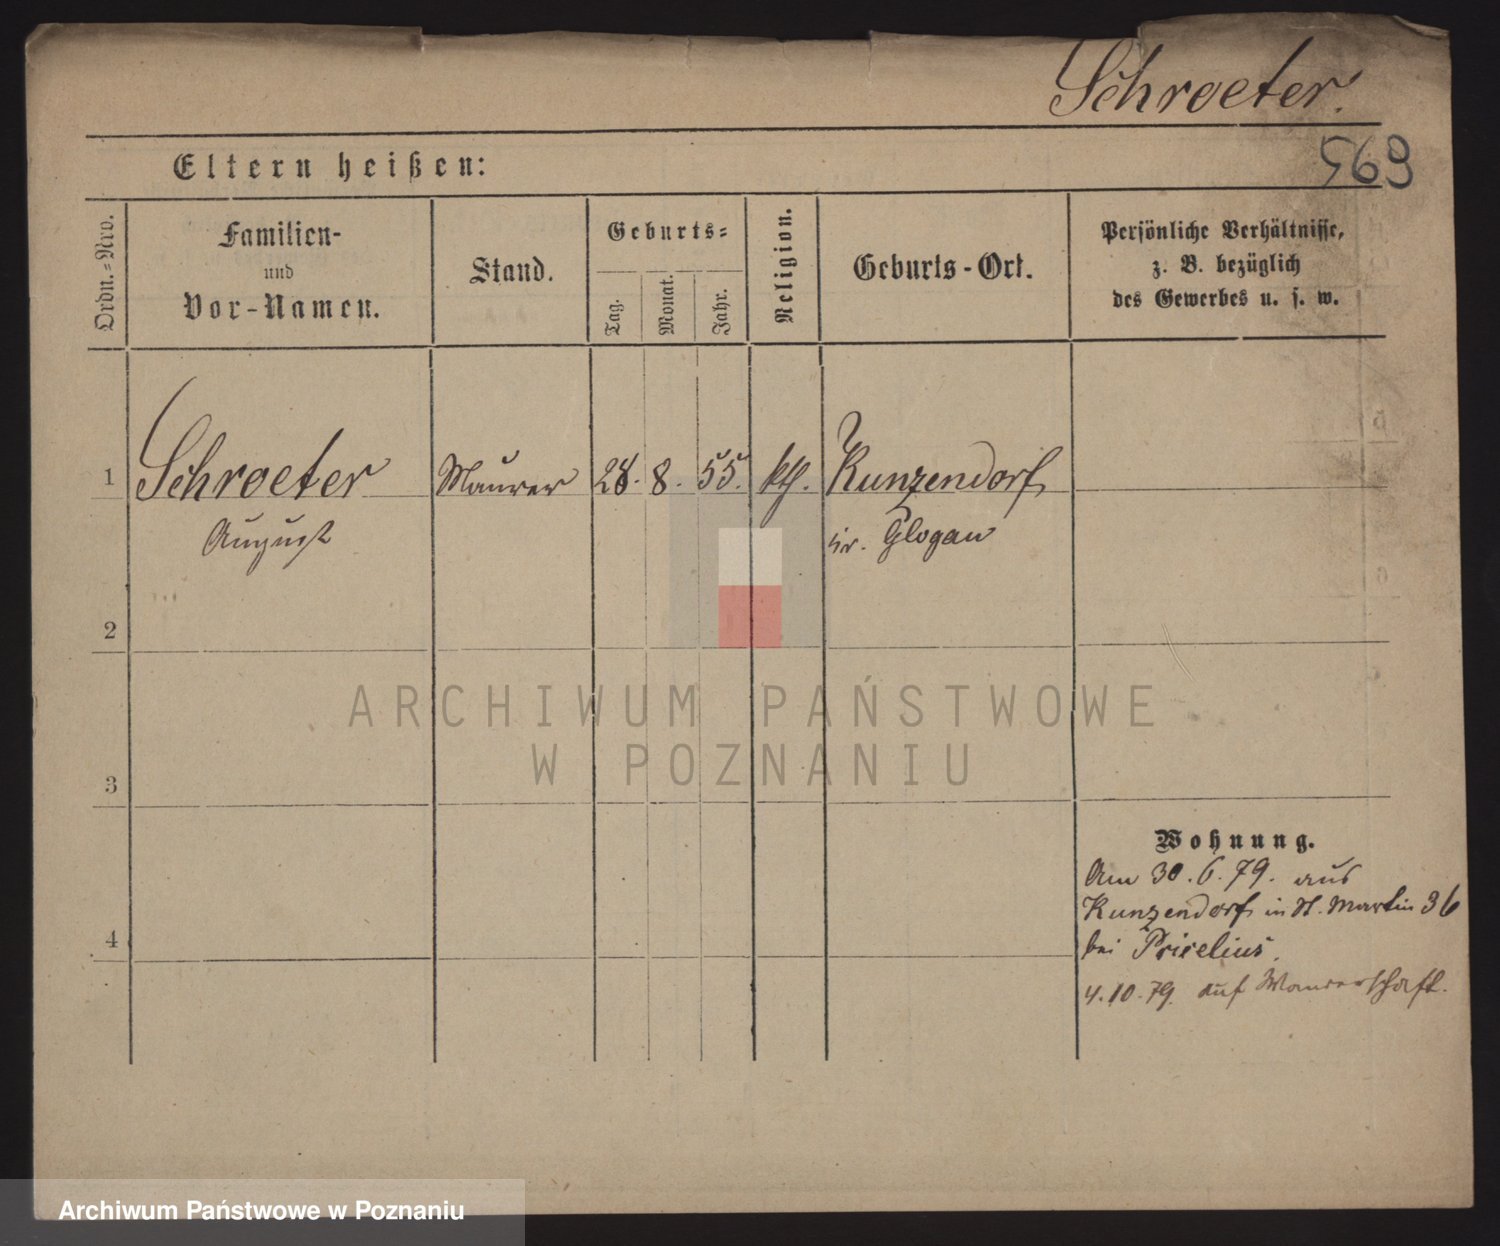 Schroeter.
569
Eltern heißen:
Ordn.=Nro.
Familien-
und
Vor-Namen.
Stand.
Geburts=
Tag.
Monat.
Jahr.
Religion.
Geburts-Ort.
Persönliche Verhältnisse,
z. B. bezüglich
des Gewerbes u. s. w.
1 Schroeter Maurer 28. 8. 55. kth. Kunzendorf
August Kr. Glogau
2
3
4
Wohnung.
Am 30.6.79. aus
Kunzendorf in St. Martin 36
bei
4.10.79. auf Wanderschaft.
ARCHIWUM PAŃSTWOWE
W POZNANIU
Archiwum Państwowe w Poznaniu